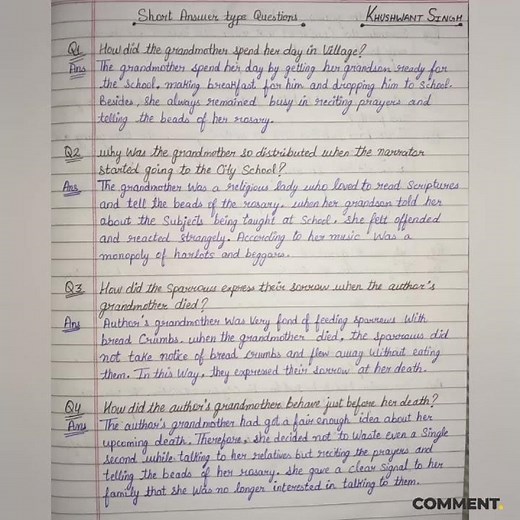 Short Answer type Questions
KHUSHWANT SINGH
Q1 How did the grandmother spend her day in Village?
Ans The grandmother spend her day by getting her grandson ready for
the School, making breakfast for him and dropping him to School.
Besides, she always remained busy in reciting prayers and
telling the beads of her rosary.
Q2 why Was the grandmother so distributed when the narrator
started going to the City School?
Ans The grandmother Was a religious lady who loved to read Scriptures
and tell the beads of the rosary. when her grandson told her
about the Subjects being taught at School, she felt offended
and reacted strangely. According to her music Was a
monopoly of harlots and beggars.
Q3 How did the Sparrows express their sorrow when the author's
grandmother died?
Ans Author's grandmother Was Very fond of feeding sparrows With
bread Crumbs. when the grandmother died, the sparrows did
not take notice of bread Crumbs and flew away Without eating
them. In this Way, they expressed their sorrow at her death.
Q4 How did the author's grandmother behave just before her death?
Ans The author's grandmother had got a fair enough idea about her
upcoming death. Therefore, she decided not to Waste even a Single
second while talking to her relatives but reciting the prayers and
telling the beads of her rosary. she gave a clear Signal to her
family that she Was no longer interested in talking to them.
COMMENT.